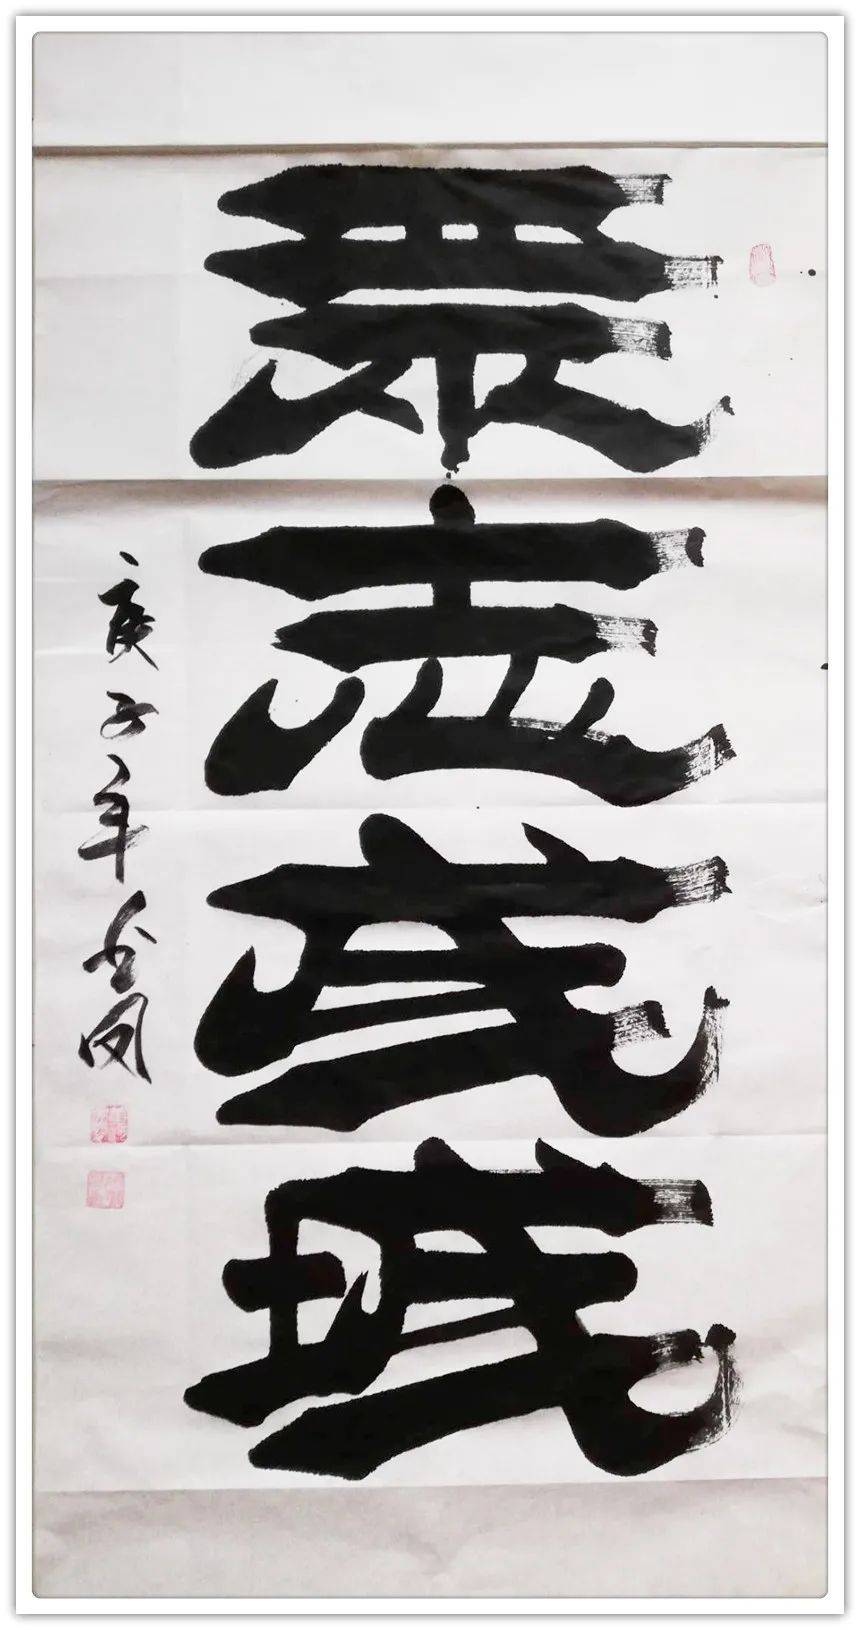 眾志成城
庚子年金凤